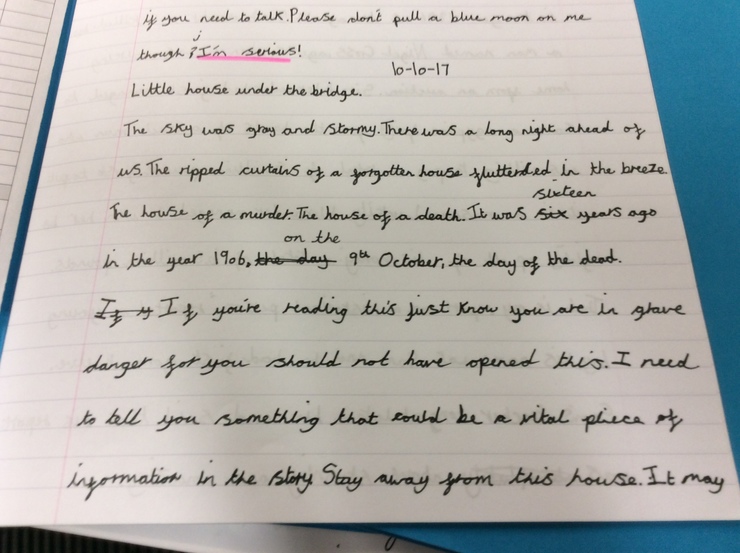 if you need to talk. Please don't pull a blue moon on me
though; I'm serious!
10-10-17
Little house under the bridge.
The sky was gray and stormy. There was a long night ahead of
us. The ripped curtains of a forgotten house flutterded in the breeze.
sixteen
The house of a murder. The house of a death. It was six years ago
on the
in the year 1906, the day 9th October, the day of the dead.
If y If you're reading this just know you are in grave
danger for you should not have opened this. I need
to tell you something that could be a vital pliece of
information in the story. Stay away from this house. It may